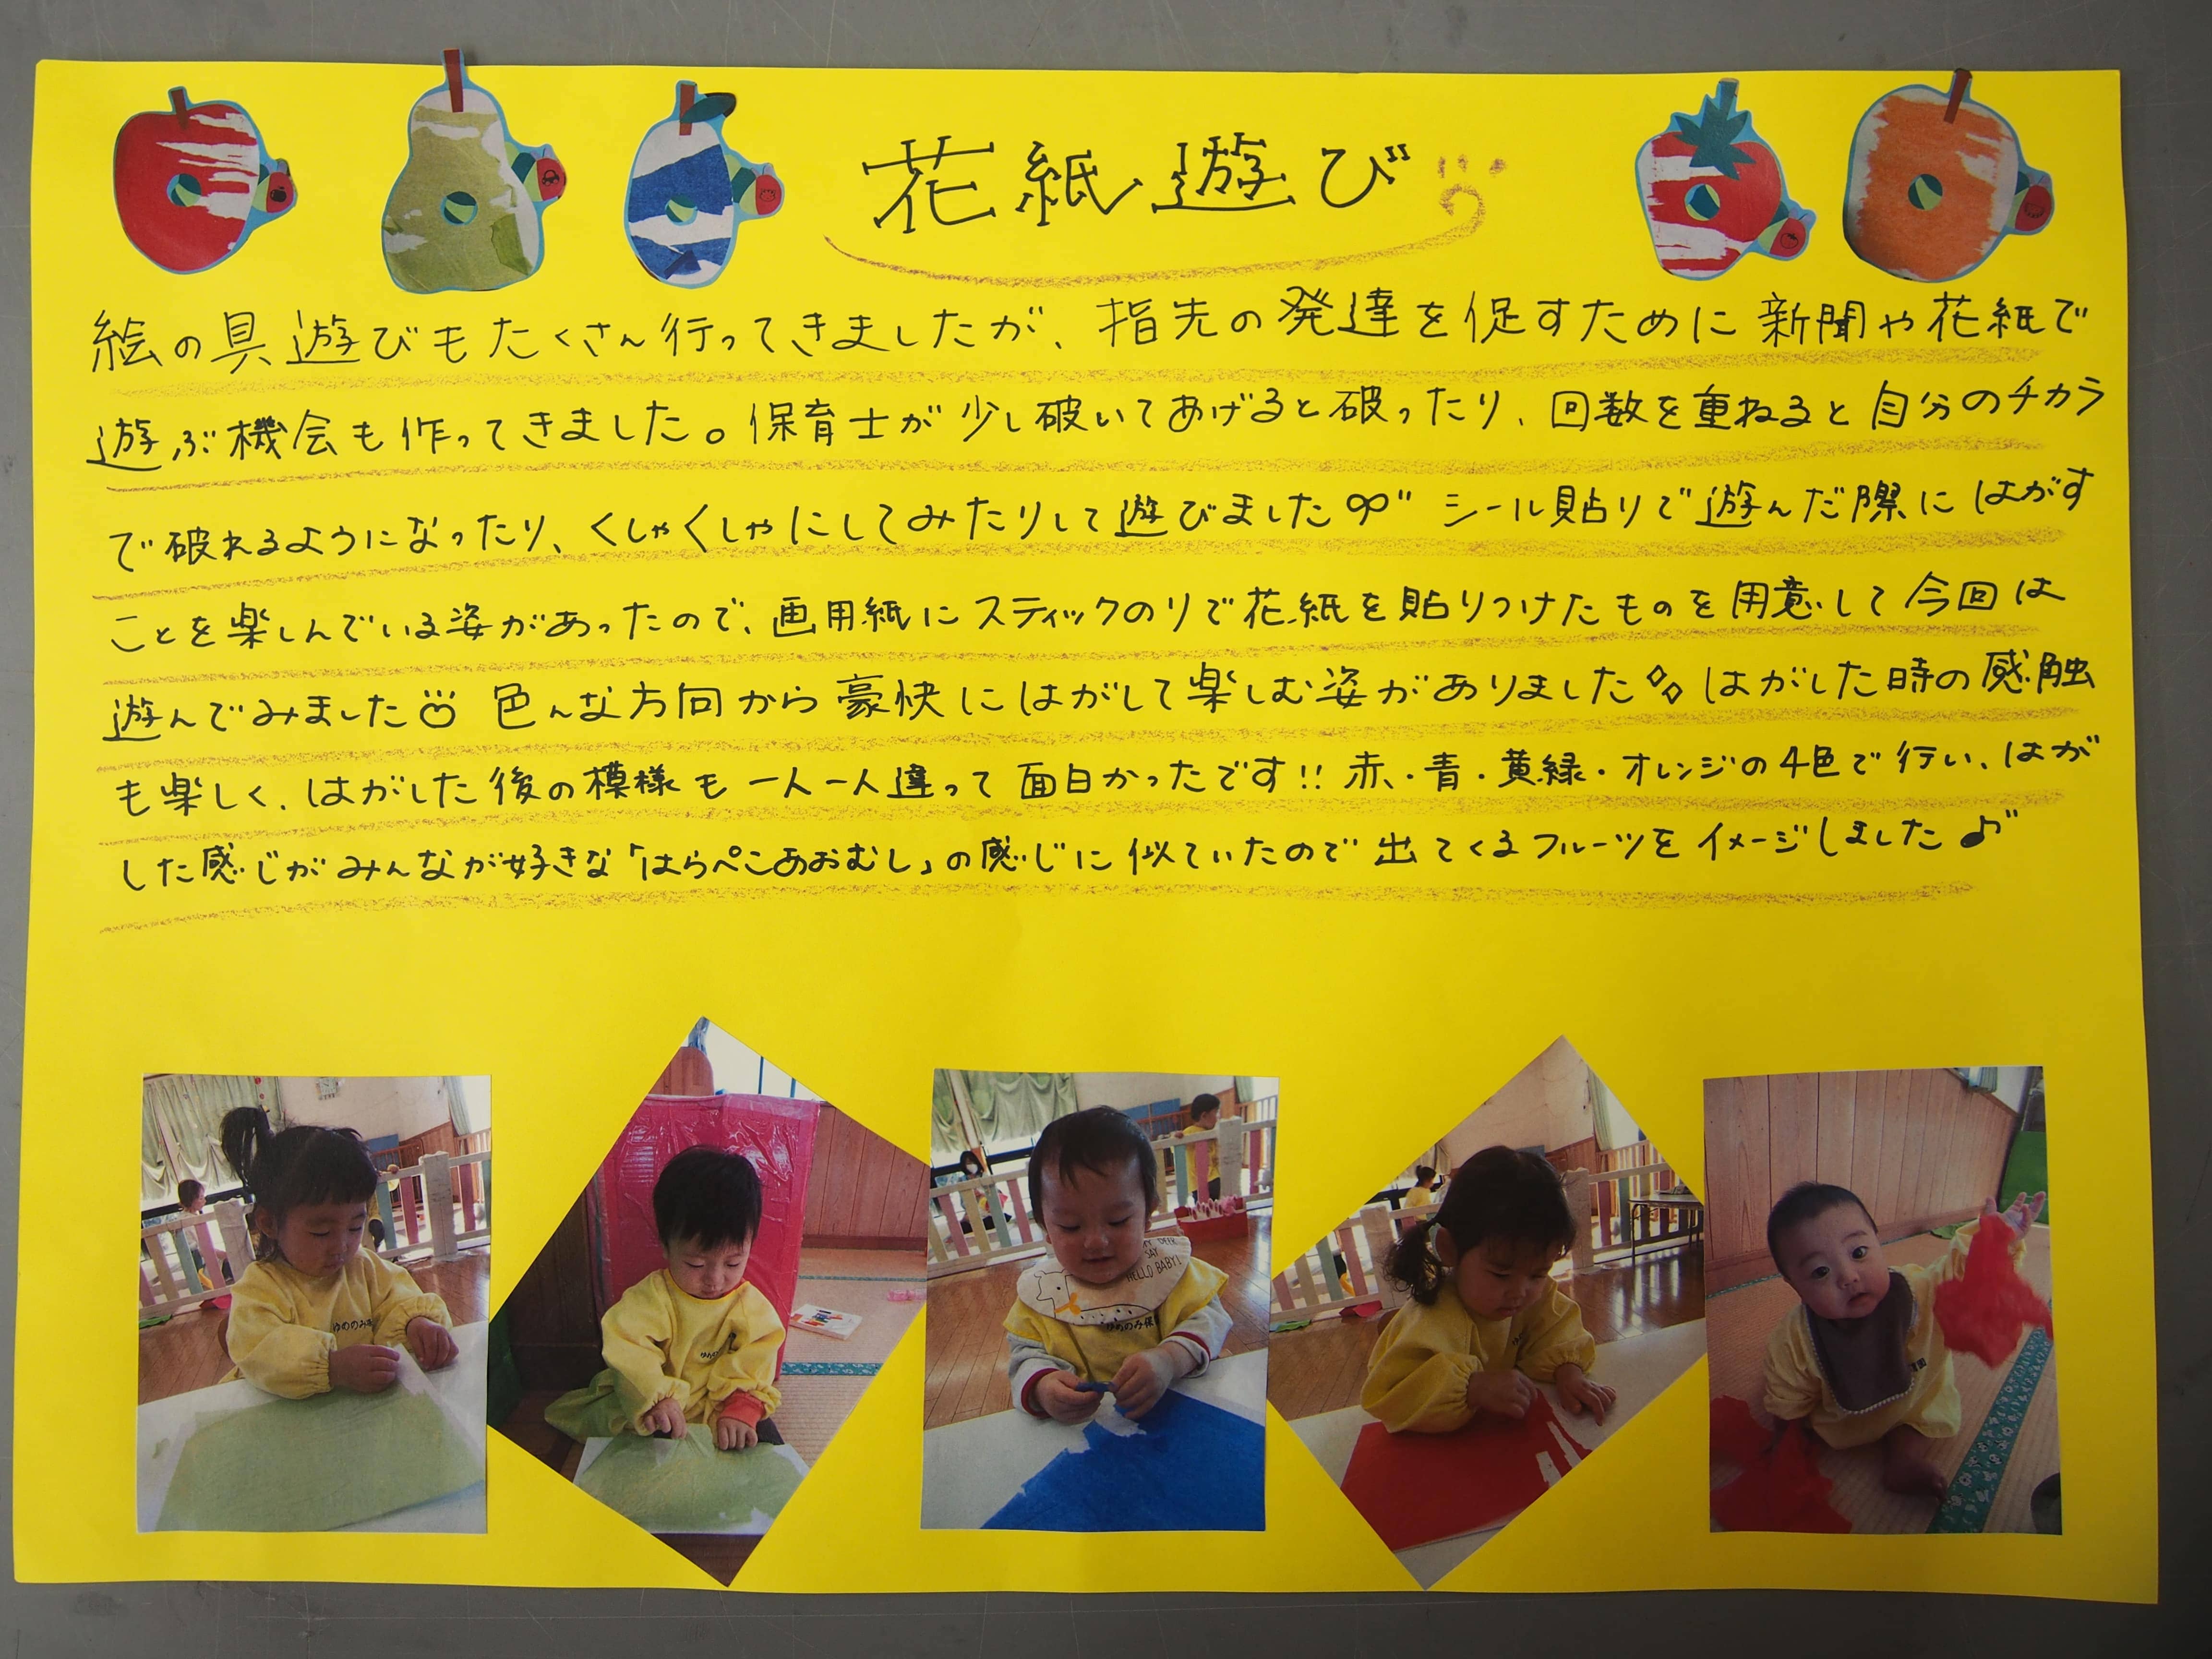 花紙遊び
絵の具遊びもたくさん行ってきましたが、指先の発達を促すために新聞や花紙で
遊ぶ機会も作ってきました。保育士が少し破いてあげると破ったり、回数を重ねると自分のチカラ
で破れるようになったり、くしゃくしゃにしてみたりして遊びました シール貼りで遊んだ際にはがす
ことを楽しんでいる姿があったので、画用紙にスティックのりで花紙を貼りつけたものを用意して今回は
遊んでみました 色んな方向から豪快にはがして楽しむ姿がありました はがした時の感触
も楽しく、はがした後の模様も一人一人違って面白かったです!! 赤・青・黄緑・オレンジの4色で行い、はが
した感じがみんなが好きな「はらぺこあおむし」の感じに似ていたので出てくるフルーツをイメージしました♪
ゆめのみ保
SAY
HELLO BABY!
ゆめのみ保